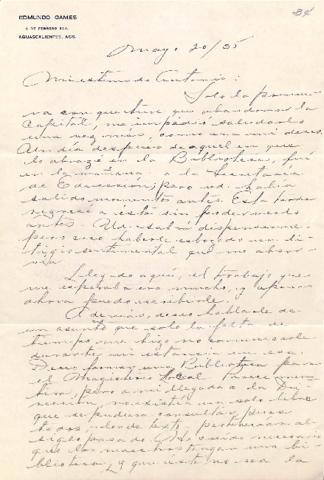 EDMUNDO GAMES
AGUASCALIENTES, AGS.
84
Mayo 20/35
Mi estimado Antonio:
Solo la
con que tuve que abandonar la
Capital, me impidió saludarlo
una vez más, como era mi deseo.
Un día después de aquel en que
lo abracé en la Biblioteca, fuí
en la mañana a la Secretaría
de Educación; pero ud. había
salido momentos antes. Esta tarde
regresé a ésta sin poder verlo
antes. Ud. sabrá dispensarme
pero
sentimental que me
Llegado aquí, el trabajo que
me esperaba era mucho, y apenas
ahora puedo escribirle.
Además, deseo hablarle de
un asunto que solo la falta de
tiempo me hizo no comunicarle
durante mi estancia en esa.
Deseo formar una Biblioteca para
el Magisterio local
pero a mi llegada a la
no existía un solo libro
que se pudiera consultar, pues
todos, donde
siglo pasado. necesario
que los maestros tengan una bi-
blioteca, y que ésta no sea la